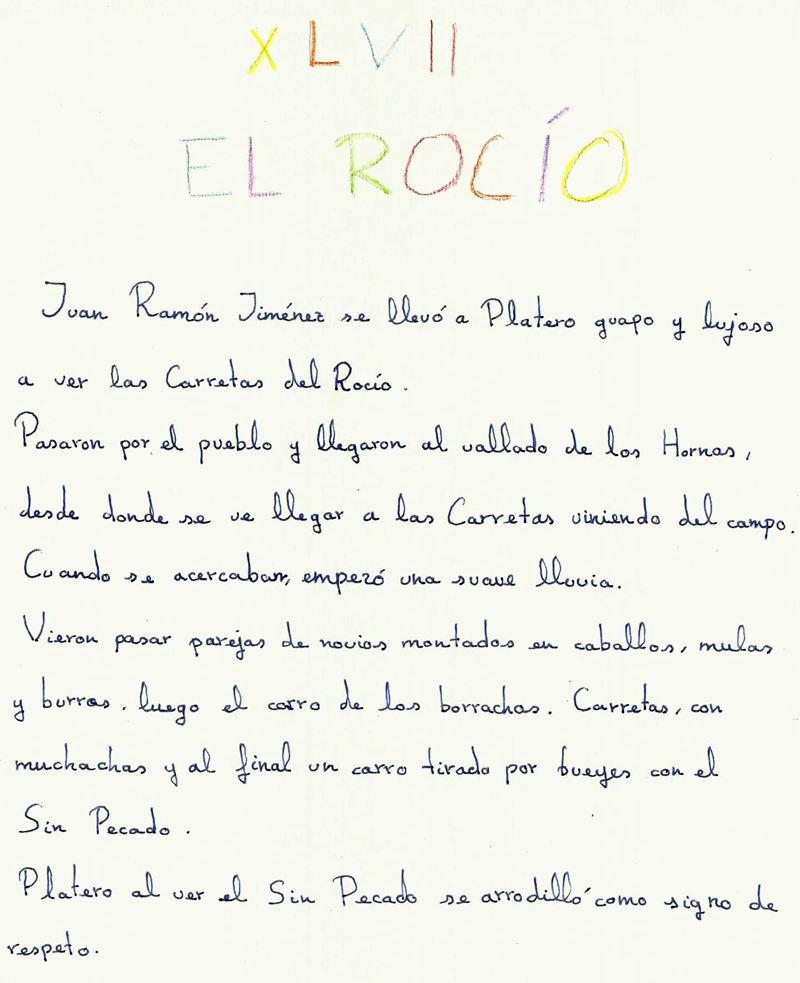 XLVII
EL ROCÍO
Juan Ramón Jiménez se llevó a Platero guapo y lujoso
a ver las Carretas del Rocío.
Pasaron por el pueblo y llegaron al vallado de los Hornos,
desde donde se ve llegar a las Carretas viniendo del campo.
Cuando se acercaban, empezó una suave lluvia.
Vieron pasar parejas de novios montados en caballos, mulas
y burros, luego el carro de los borrachos. Carretas, con
muchachas y al final un carro tirado por bueyes con el
Sin Pecado.
Platero al ver el Sin Pecado se arrodilló como signo de
respeto.